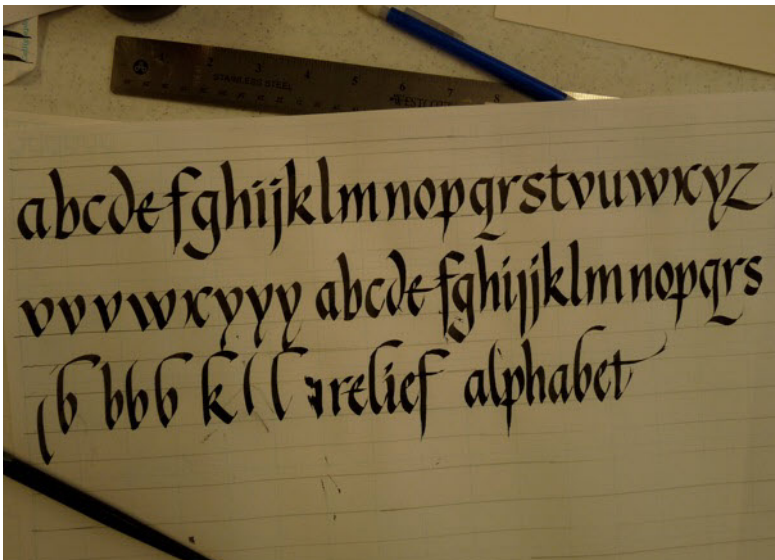 1 2 3 4 5 6 7 8
STAINLESS STEEL
WESTCOTT
abcdefghijklmnopqrstvuwxyz
vvvwxyyy abcdefghijjklmnopqrs
b bbb k l l relief alphabet